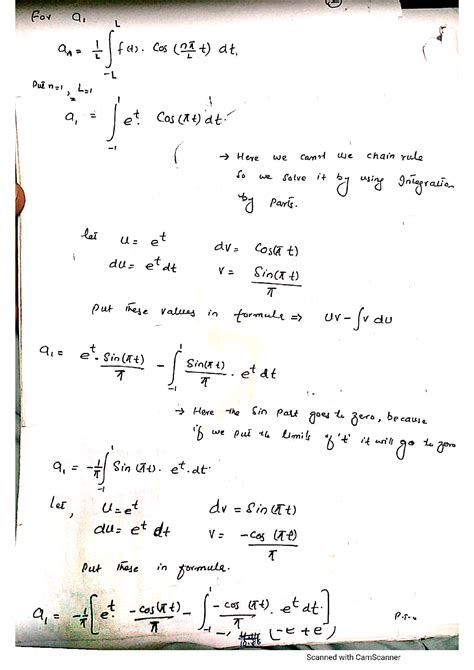 For a₁
aₙ = 1/L ∫_{-L}^{L} f(t). Cos (nπ/L t) dt,
Put n=1, L=1
a₁ = ∫_{-1}^{1} e^t. Cos(πt) dt.
→ Here we cannt use chain rule
So we solve it by using Integration
by Parts.
let u = e^t dv = Cos(π t)
du = e^t dt v = Sin(π t)/π
Put these values in formula ⇒ UV - ∫v du
a₁ = e^t. Sin(πt)/π - ∫_{-1}^{1} Sin(πt)/π . e^t dt
→ Here the Sin part goes to zero, because
if we put the limits of 't' it will go to zero
a₁ = -1/π ∫_{-1}^{1} Sin (πt). e^t. dt.
let, U = e^t dv = Sin(πt)
du = e^t dt v = -cos (πt)/π
Put these in formula.
a₁ = -1/π [e^t. -cos(πt)/π - ∫_{-1}^{1} -cos (πt)/π . e^t dt.]
(-e + e)
Scanned with CamScanner